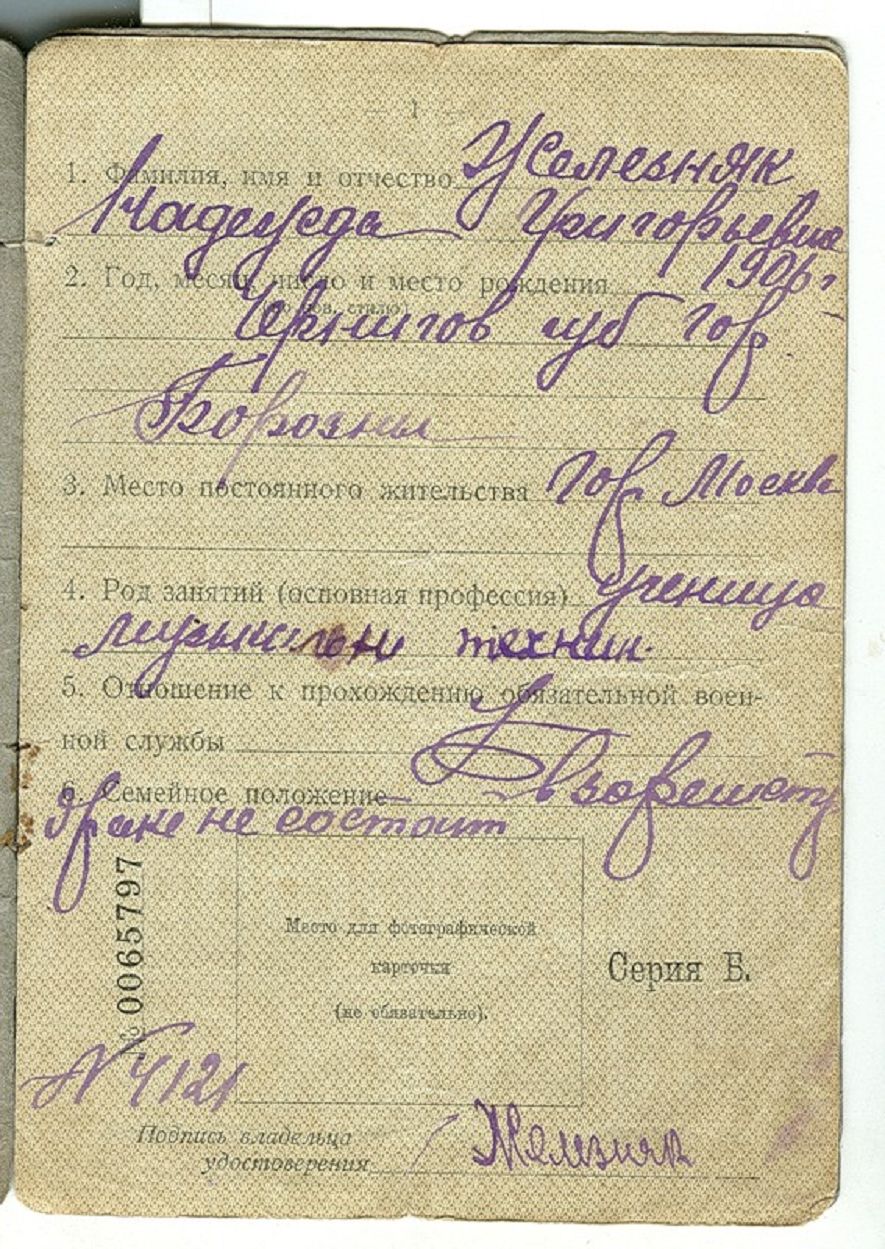 — 1 —
1. Фамилия, имя и отчество Железняк
Надежда Григорьевна
2. Год, месяц, число и место рождения 1906 г
(по нов. стилю)
Чернигов губ гор.
Борозны
3. Место постоянного жительства гор Москва
4. Род занятий (основная профессия) ученица
музыкальн техник.
5. Отношение к прохождению обязательной воен-
ной службы
6. Семейное положение В зарегистр
браке не состоит
№ 0065797
Место для фотографической
карточки
(не обязательно).
Серия Б.
N 4121
Подпись владельца
удостоверения Железняк